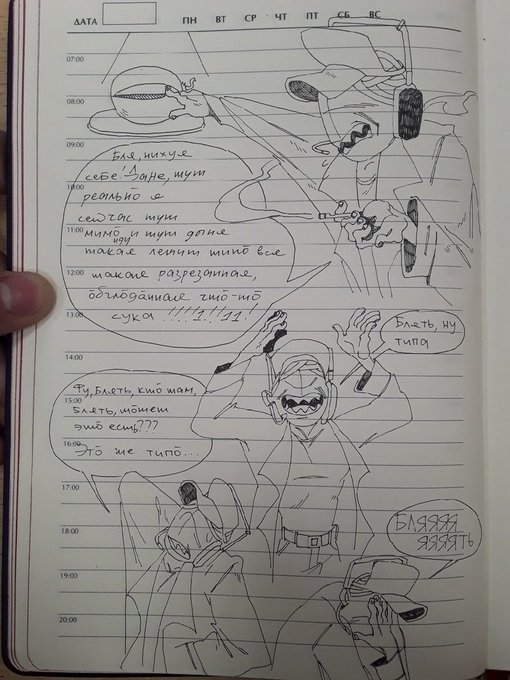 ДАТА ПН ВТ СР ЧТ ПТ СБ ВС
07:00
08:00
09:00
Бля, нихуя
себе! Дане, тут
10:00
реально я
сейчас тут
11:00
мимо иду и тут дыня
такая летит типо вся
12:00
такая разрезанная,
обглоданная что-то
сука !!!!1!!11!
13:00
Блять, ну
типа
14:00
Фу, блять, кто там,
15:00
блять, может
это есть???
16:00
Это же типо...
17:00
БЛЯЯЯЯ
ЯЯЯЯТЬ
18:00
19:00
20:00